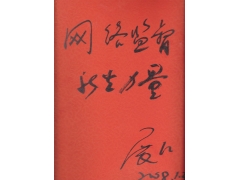 网络监督
新生力量
展江
2009.1